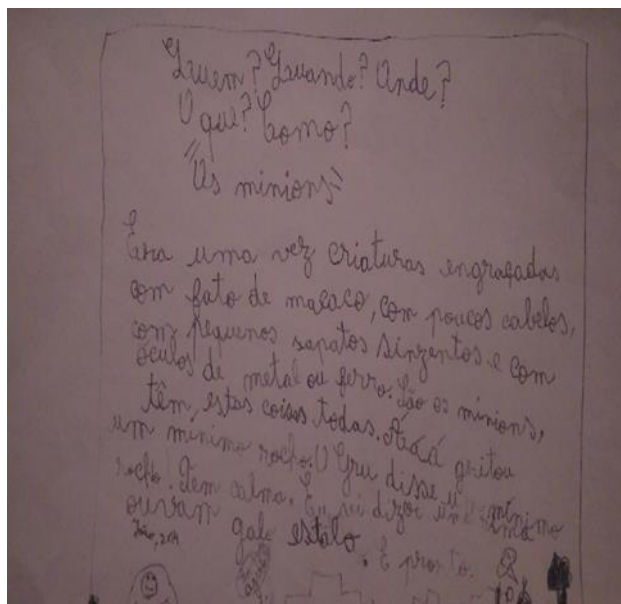 Quem? Quando? Onde?
O quê? Como?
"Os minions"
Era uma vez criaturas engraçadas
com fato de macaco, com poucos cabelos,
com pequenos sapatos sinzentos e com
óculos de metal ou ferro. São os minions,
têm estas coisas todas. Ááá gritou
um mínimo rocho. O Gru disse
mínimo
rocho! Tem calma. Eu sei dizer uma rima
ouvam galo estalo. E pronto.